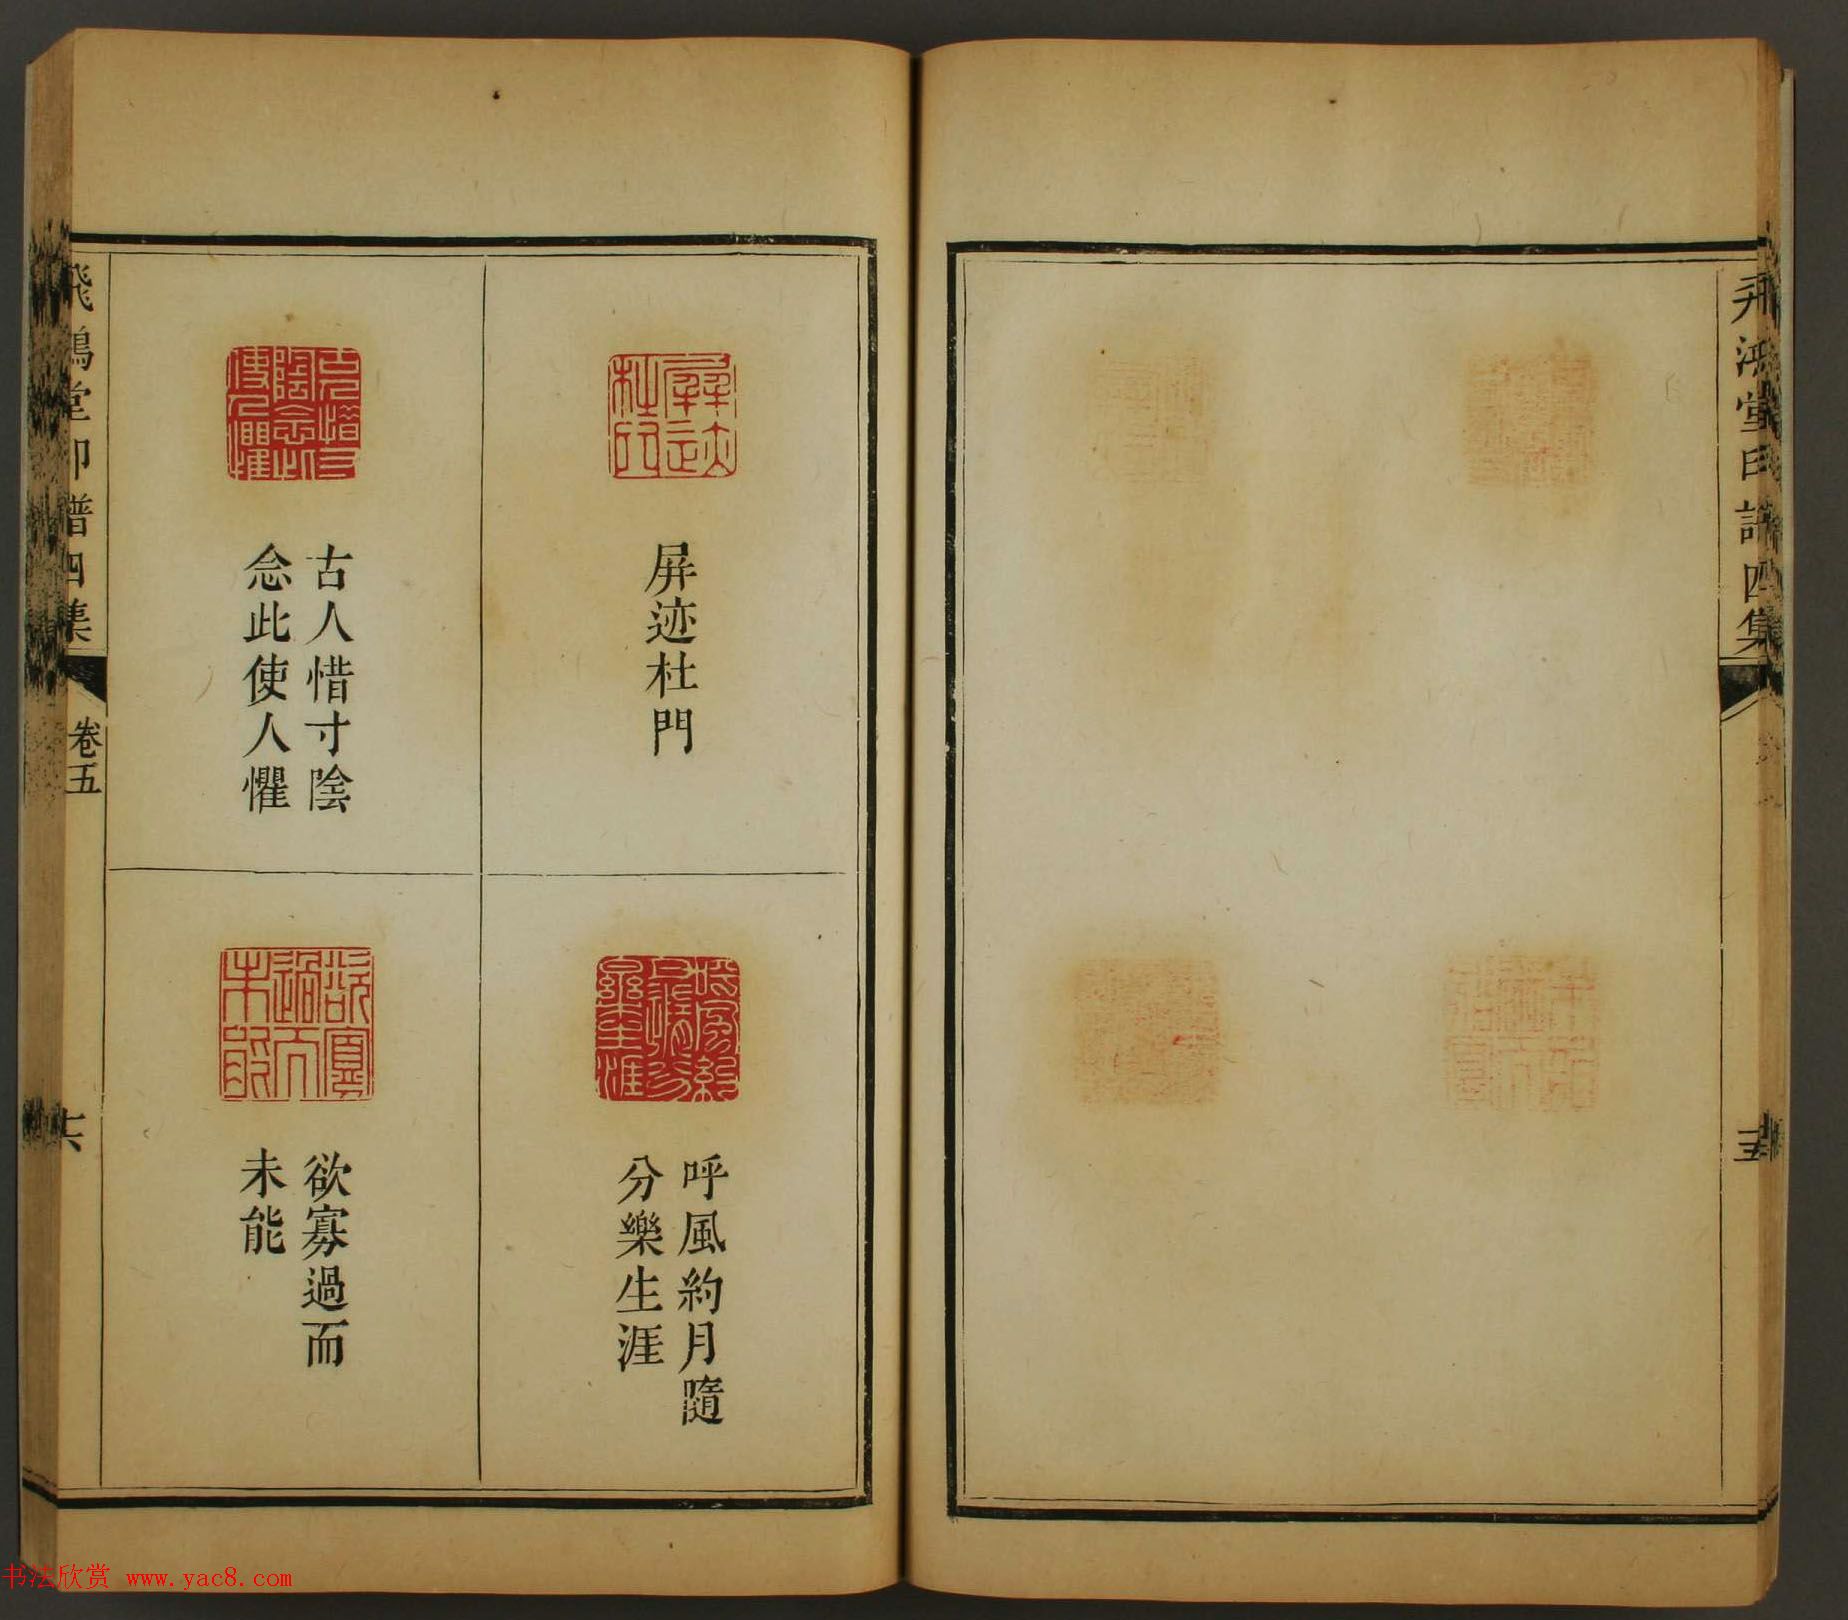 飛鴻堂印譜四集
屏迹杜門
呼風約月隨
分樂生涯
古人惜寸陰
念此使人懼
欲寡過而
未能
飛鴻堂印譜四集
卷五
书法欣赏 www.yac8.com